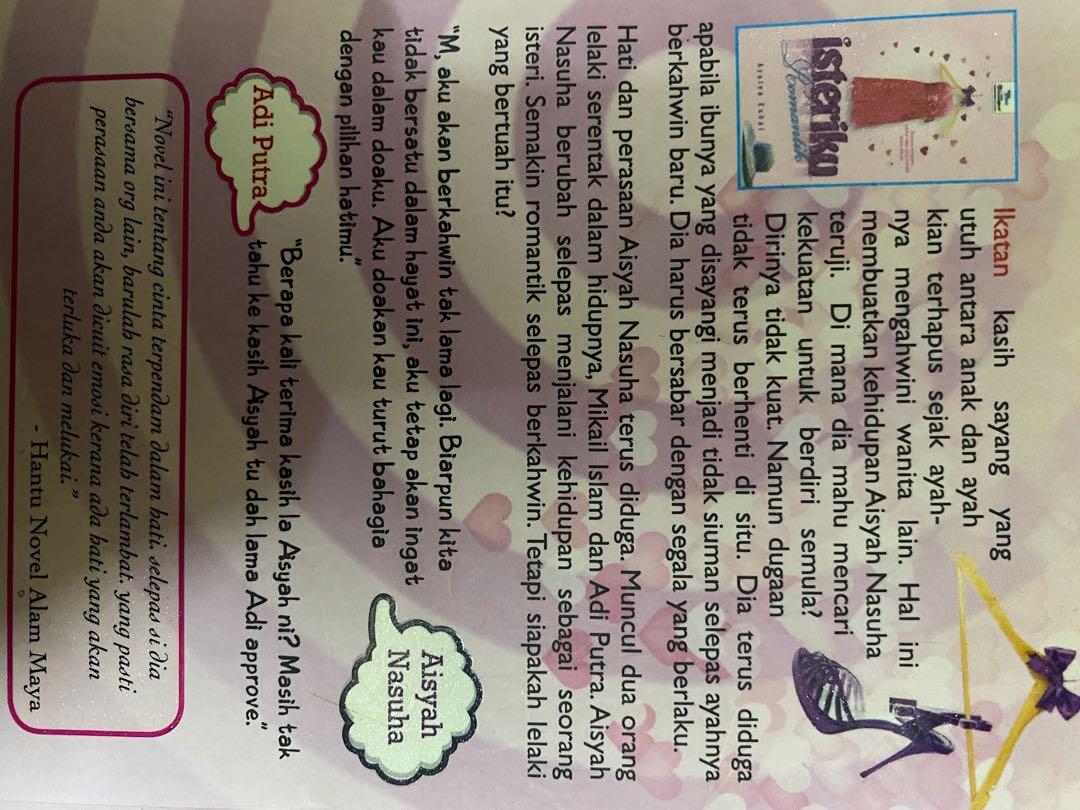 isteriku
Romantik
Ikatan kasih sayang yang
utuh antara anak dan ayah
kian terhapus sejak ayah-
nya mengahwini wanita lain. Hal ini
membuatkan kehidupan Aisyah Nasuha
teruji. Di mana dia mahu mencari
kekuatan untuk berdiri semula?
Dirinya tidak kuat. Namun dugaan
tidak terus berhenti di situ. Dia terus diduga
apabila ibunya yang disayangi menjadi tidak siuman selepas ayahnya
berkahwin baru. Dia harus bersabar dengan segala yang berlaku.
Hati dan perasaan Aisyah Nasuha terus diduga. Muncul dua orang
lelaki serentak dalam hidupnya, Mikail Islam dan Adi Putra. Aisyah
Nasuha berubah selepas menjalani kehidupan sebagai seorang
isteri. Semakin romantik selepas berkahwin. Tetapi siapakah lelaki
yang bertuah itu?
"M, aku akan berkahwin tak lama lagi. Biarpun kita
tidak bersatu dalam hayat ini, aku tetap akan ingat
kau dalam doaku. Aku doakan kau turut bahagia
dengan pilihan hatimu."
Aisyah
Nasuha
Adi Putra
"Berapa kali terima kasih la Aisyah ni? Masih tak
tahu ke kasih Aisyah tu dah lama Adi approve."
"Novel ini tentang cinta terpendam dalam hati. selepas si dia
bersama org lain, barulah rasa diri telah terlambat. yang pasti
perasaan anda akan dicuit emosi kerana ada hati yang akan
terluka dan melukai."
- Hantu Novel Alam Maya